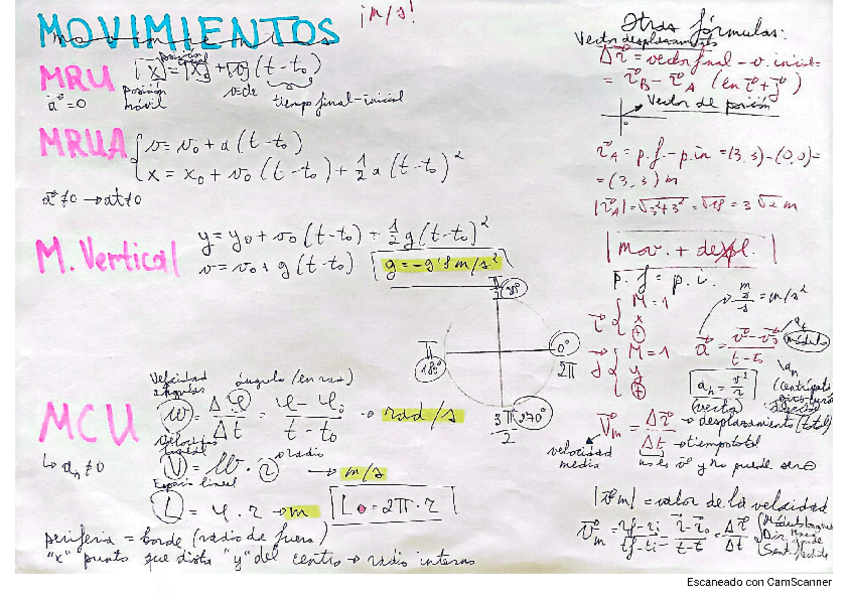 MOVIMIENTOS
¡m/s!
MRU
posición inicial
|x| = |x₀| + |v₀| (t-t₀)
a⃗=0
posición móvil
v=cte
tiempo final-inicial
MRUA
v = v₀ + a (t-t₀)
x = x₀ + v₀ (t-t₀) + 1/2 a (t-t₀)²
a⃗≠0 → at≠0
M. Vertical
y = y₀ + v₀ (t-t₀) + 1/2 g (t-t₀)²
v = v₀ + g (t-t₀)
g = -9'8 m/s²
π/2 90º
π 180º
0º 2π
3π/2 270º
MCU
↳ aₙ≠0
Velocidad angular
ángulo (en rad)
w = Δφ/Δt = φ-φ₀/t-t₀ → rad/s
Velocidad lineal
radio
V = w · r → m/s
Espacio lineal
L = φ · r → m
L₀ = 2π · r
periferia = borde (radio de fuera)
"x" punto que dista "y" del centro → radio interno
Otras fórmulas:
Vector desplazamiento
Δr⃗ = vector final - v. inicial =
= r⃗B - r⃗A (en i⃗ + j⃗)
Vector de posición
r⃗A = p.f - p.in = (3,3)-(0,0) =
= (3,3) m
|r⃗A| = √3²+3² = √18 = 3√2 m
Mov. + despl.
p.f = p.i.
i⃗ { M=1
x
+
j⃗ { M=1
y
+
m/s/s = m/s²
a⃗ = v⃗-v⃗₀/t-t₀
at
módulo
aₙ = v²/r
aₙ
(centrípeta
(vector)
V⃗m = Δr⃗/Δt → desplazamiento (total)
→ tiempo total
velocidad media
no es v⃗ y no puede ser 0
|v⃗m| = valor de la velocidad
v⃗m = rf-ri/tf-ti = r⃗-r⃗₀/t-t₀ = Δr⃗/Δt
Escaneado con CamScanner